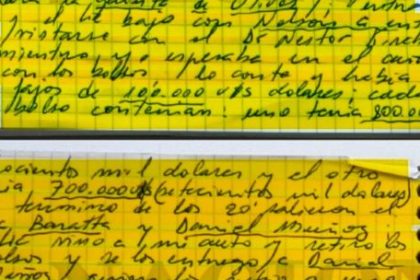 de Olivos; entro
y el Lic bajo con Nelson a en
tristarse con el Dr Nestor
mientras yo esperaba en el auto
con los bolsos, lo conte y habia
fajos de 100.000 U$S dolares; cada
bolso contenian: uno tenia 800.0
ocientos mil dolares y el otro
ia 700.000 U$S (setecientos mil dolares
termino de los 20' salieron el
Baratta y Daniel Muñoz
Lic vino a mi auto y retiro los
olsos y se los entrego a Daniel